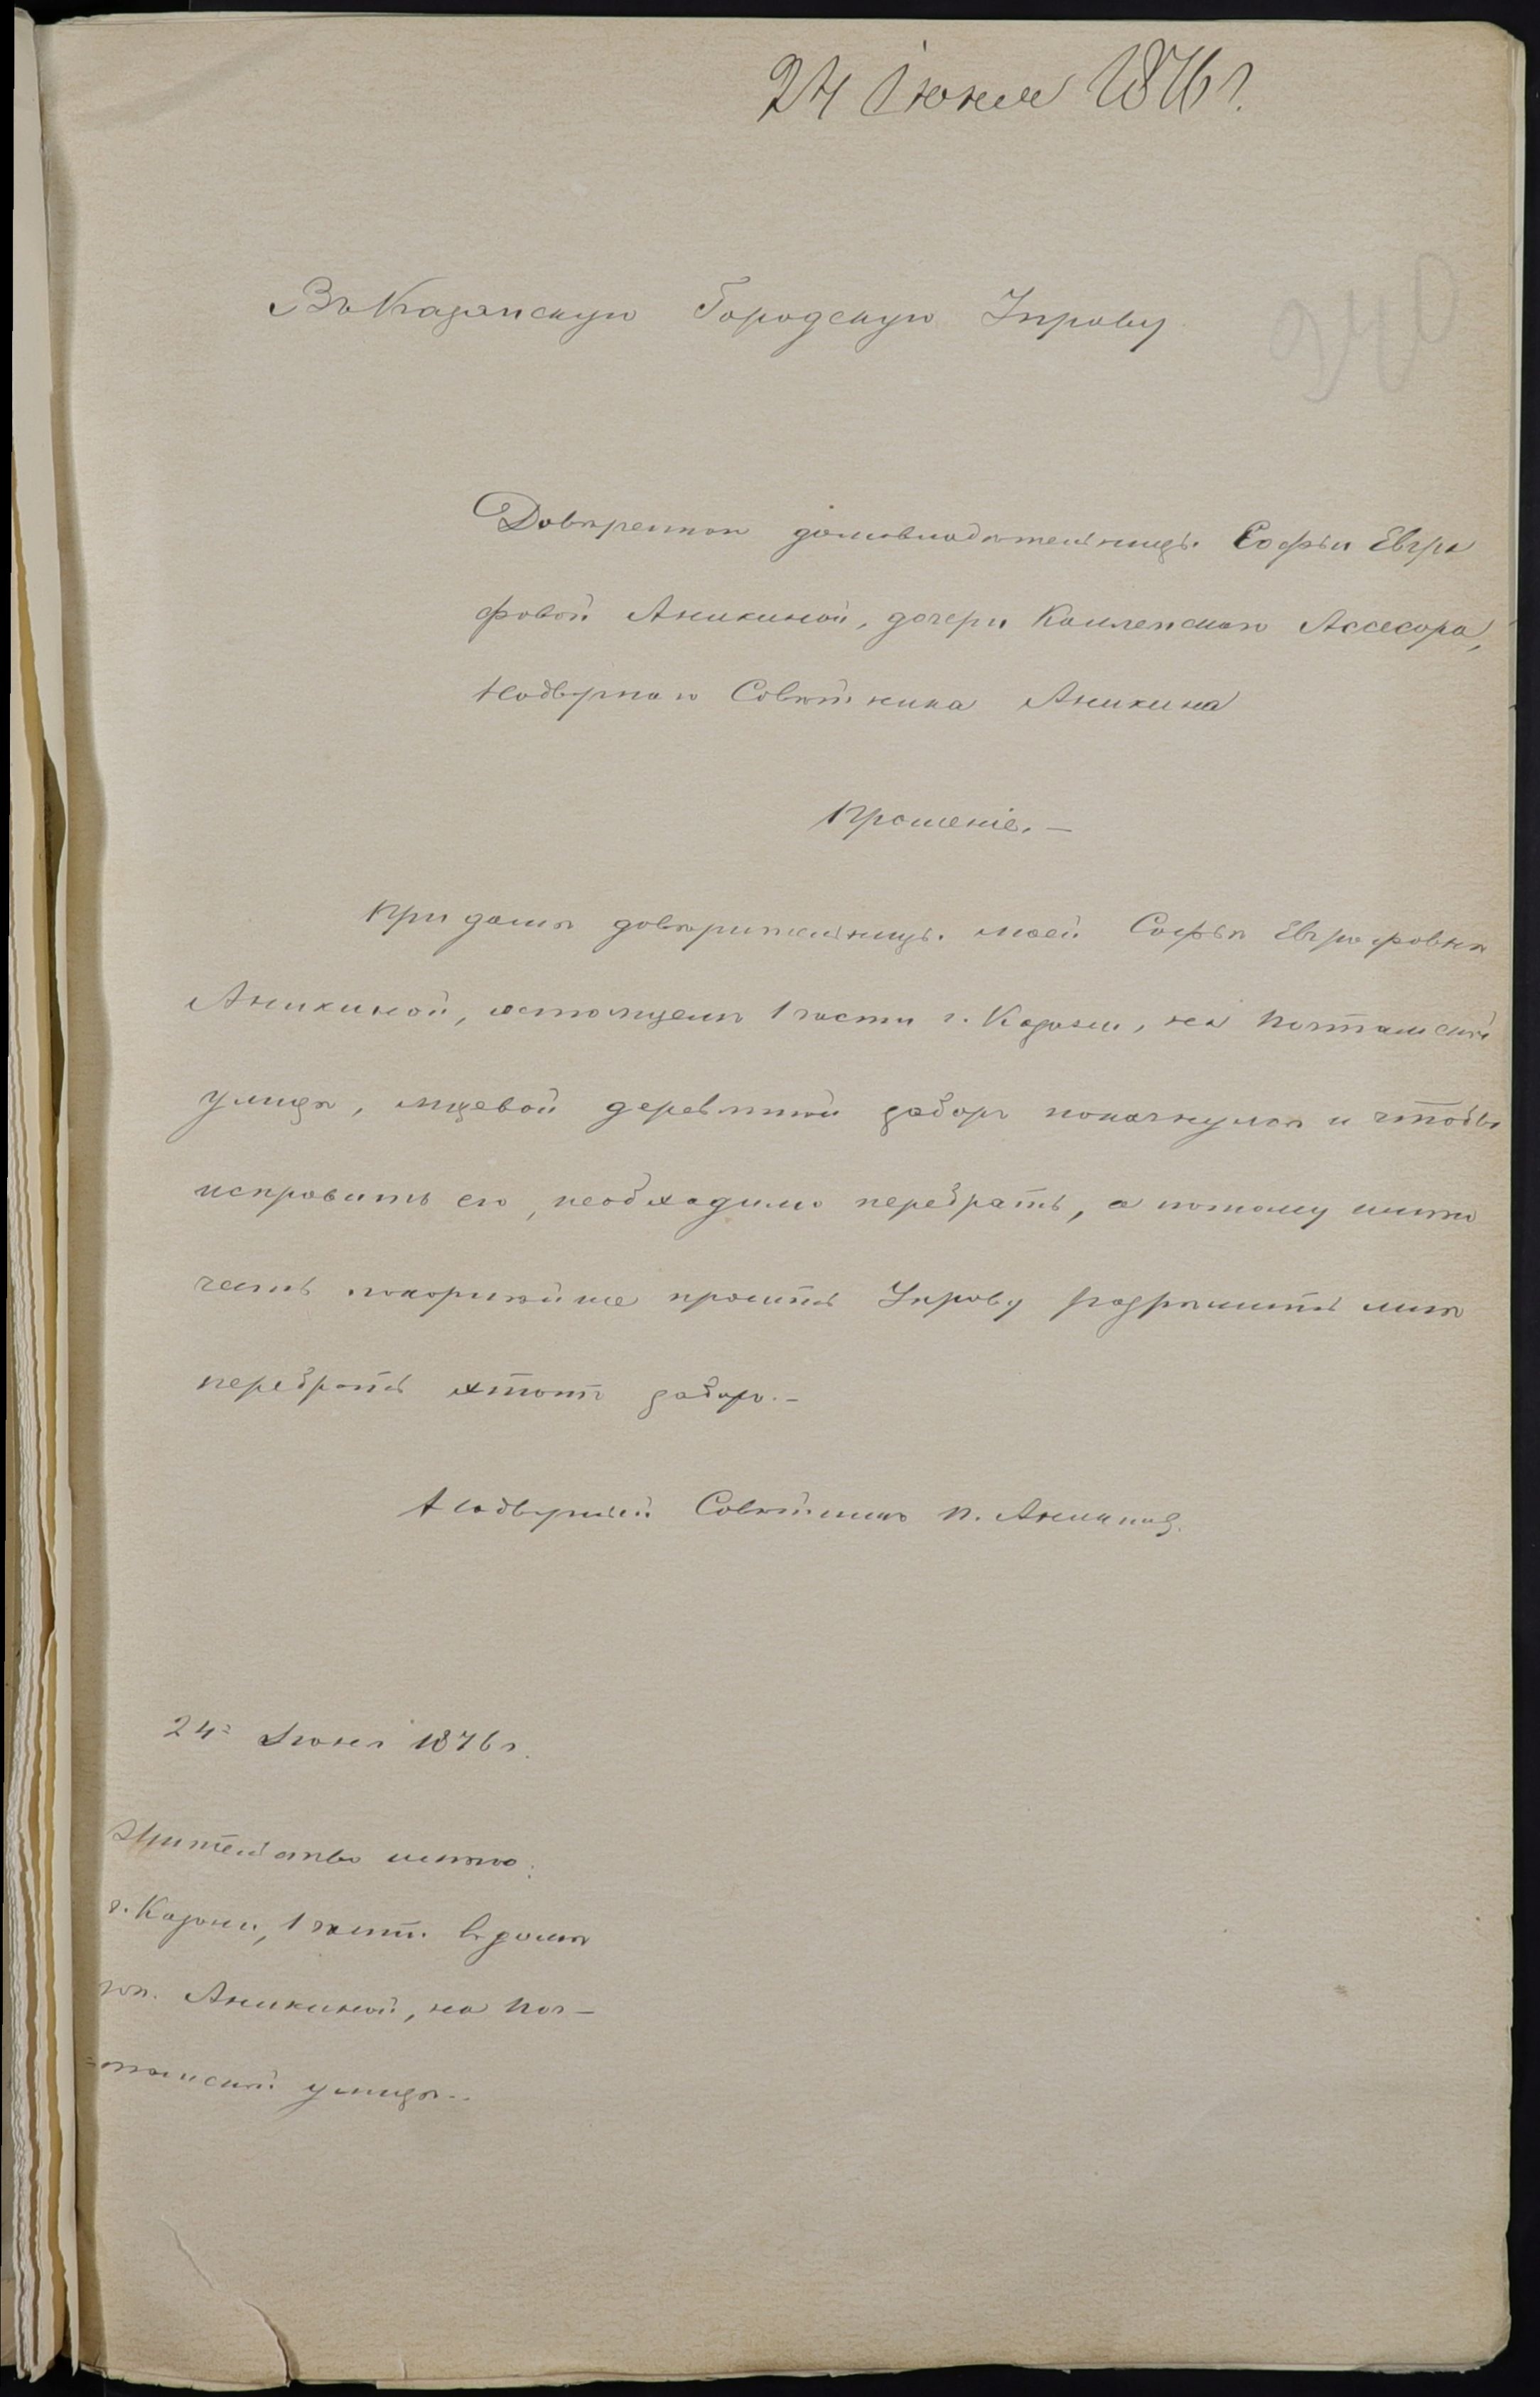 24 Іюня 1876 г.
240
Въ Казанскую Городскую Управу
Довѣреннаго домовладѣтельницы Софьи Евгра
фовой Аникиной, дочери Коллежскаго Ассесора,
Надворнаго Совѣтника Аникина
Прошеніе. —
При домѣ довѣрительницы моей Софьи Евграфовны
Аникиной, состоящемъ 1 части г. Казани, на Почтамской
улицѣ, лицевой деревянный заборъ покачнулся и чтобы
исправить его, необходимо перебрать, а потому имѣю
честь покорнѣйше просить Управу разрѣшить мнѣ
перебрать этотъ заборъ. —
Надворный Совѣтникъ П. Аникинъ.
24го Іюня 1876 г.
Жительство имѣю:
г. Казани, 1 части въ домѣ
гж. Аникиной, на Поч—
=тамской улицѣ. —